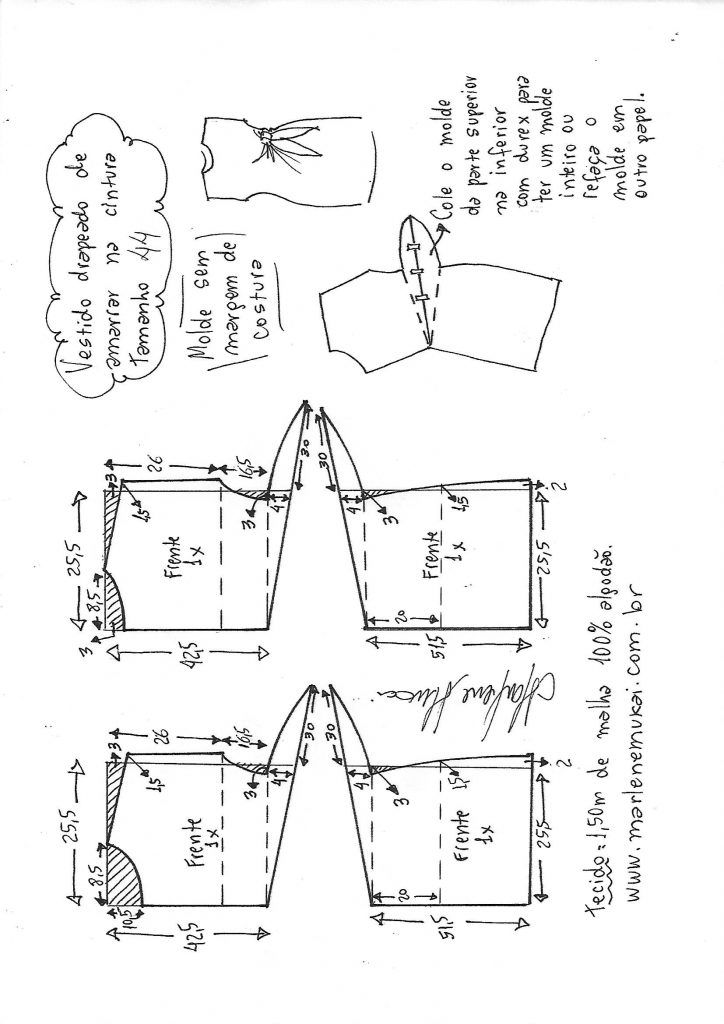 Vestido drapeado de
amarrar na cintura
Tamanho 44
Molde sem
margem de
costura
Cole o molde
da parte superior
na inferior
com durex para
ter um molde
inteiro ou
refaça o
molde em
outro papel.
25,5
8,5
10,5
3
1,5
26
16,5
3
4
30
Frente
1x
42,5
30
4
3
20
1,5
Frente
1x
51,5
25,5
2
25,5
8,5
3
3
1,5
26
16,5
3
4
30
Frente
1x
42,5
30
4
3
20
1,5
Frente
1x
51,5
25,5
2
Tecido = 1,50m de malha 100% algodão.
www.marlenemukai.com.br